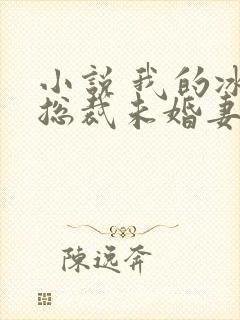 小説我的冰
總裁未婚妻
陳遠奔